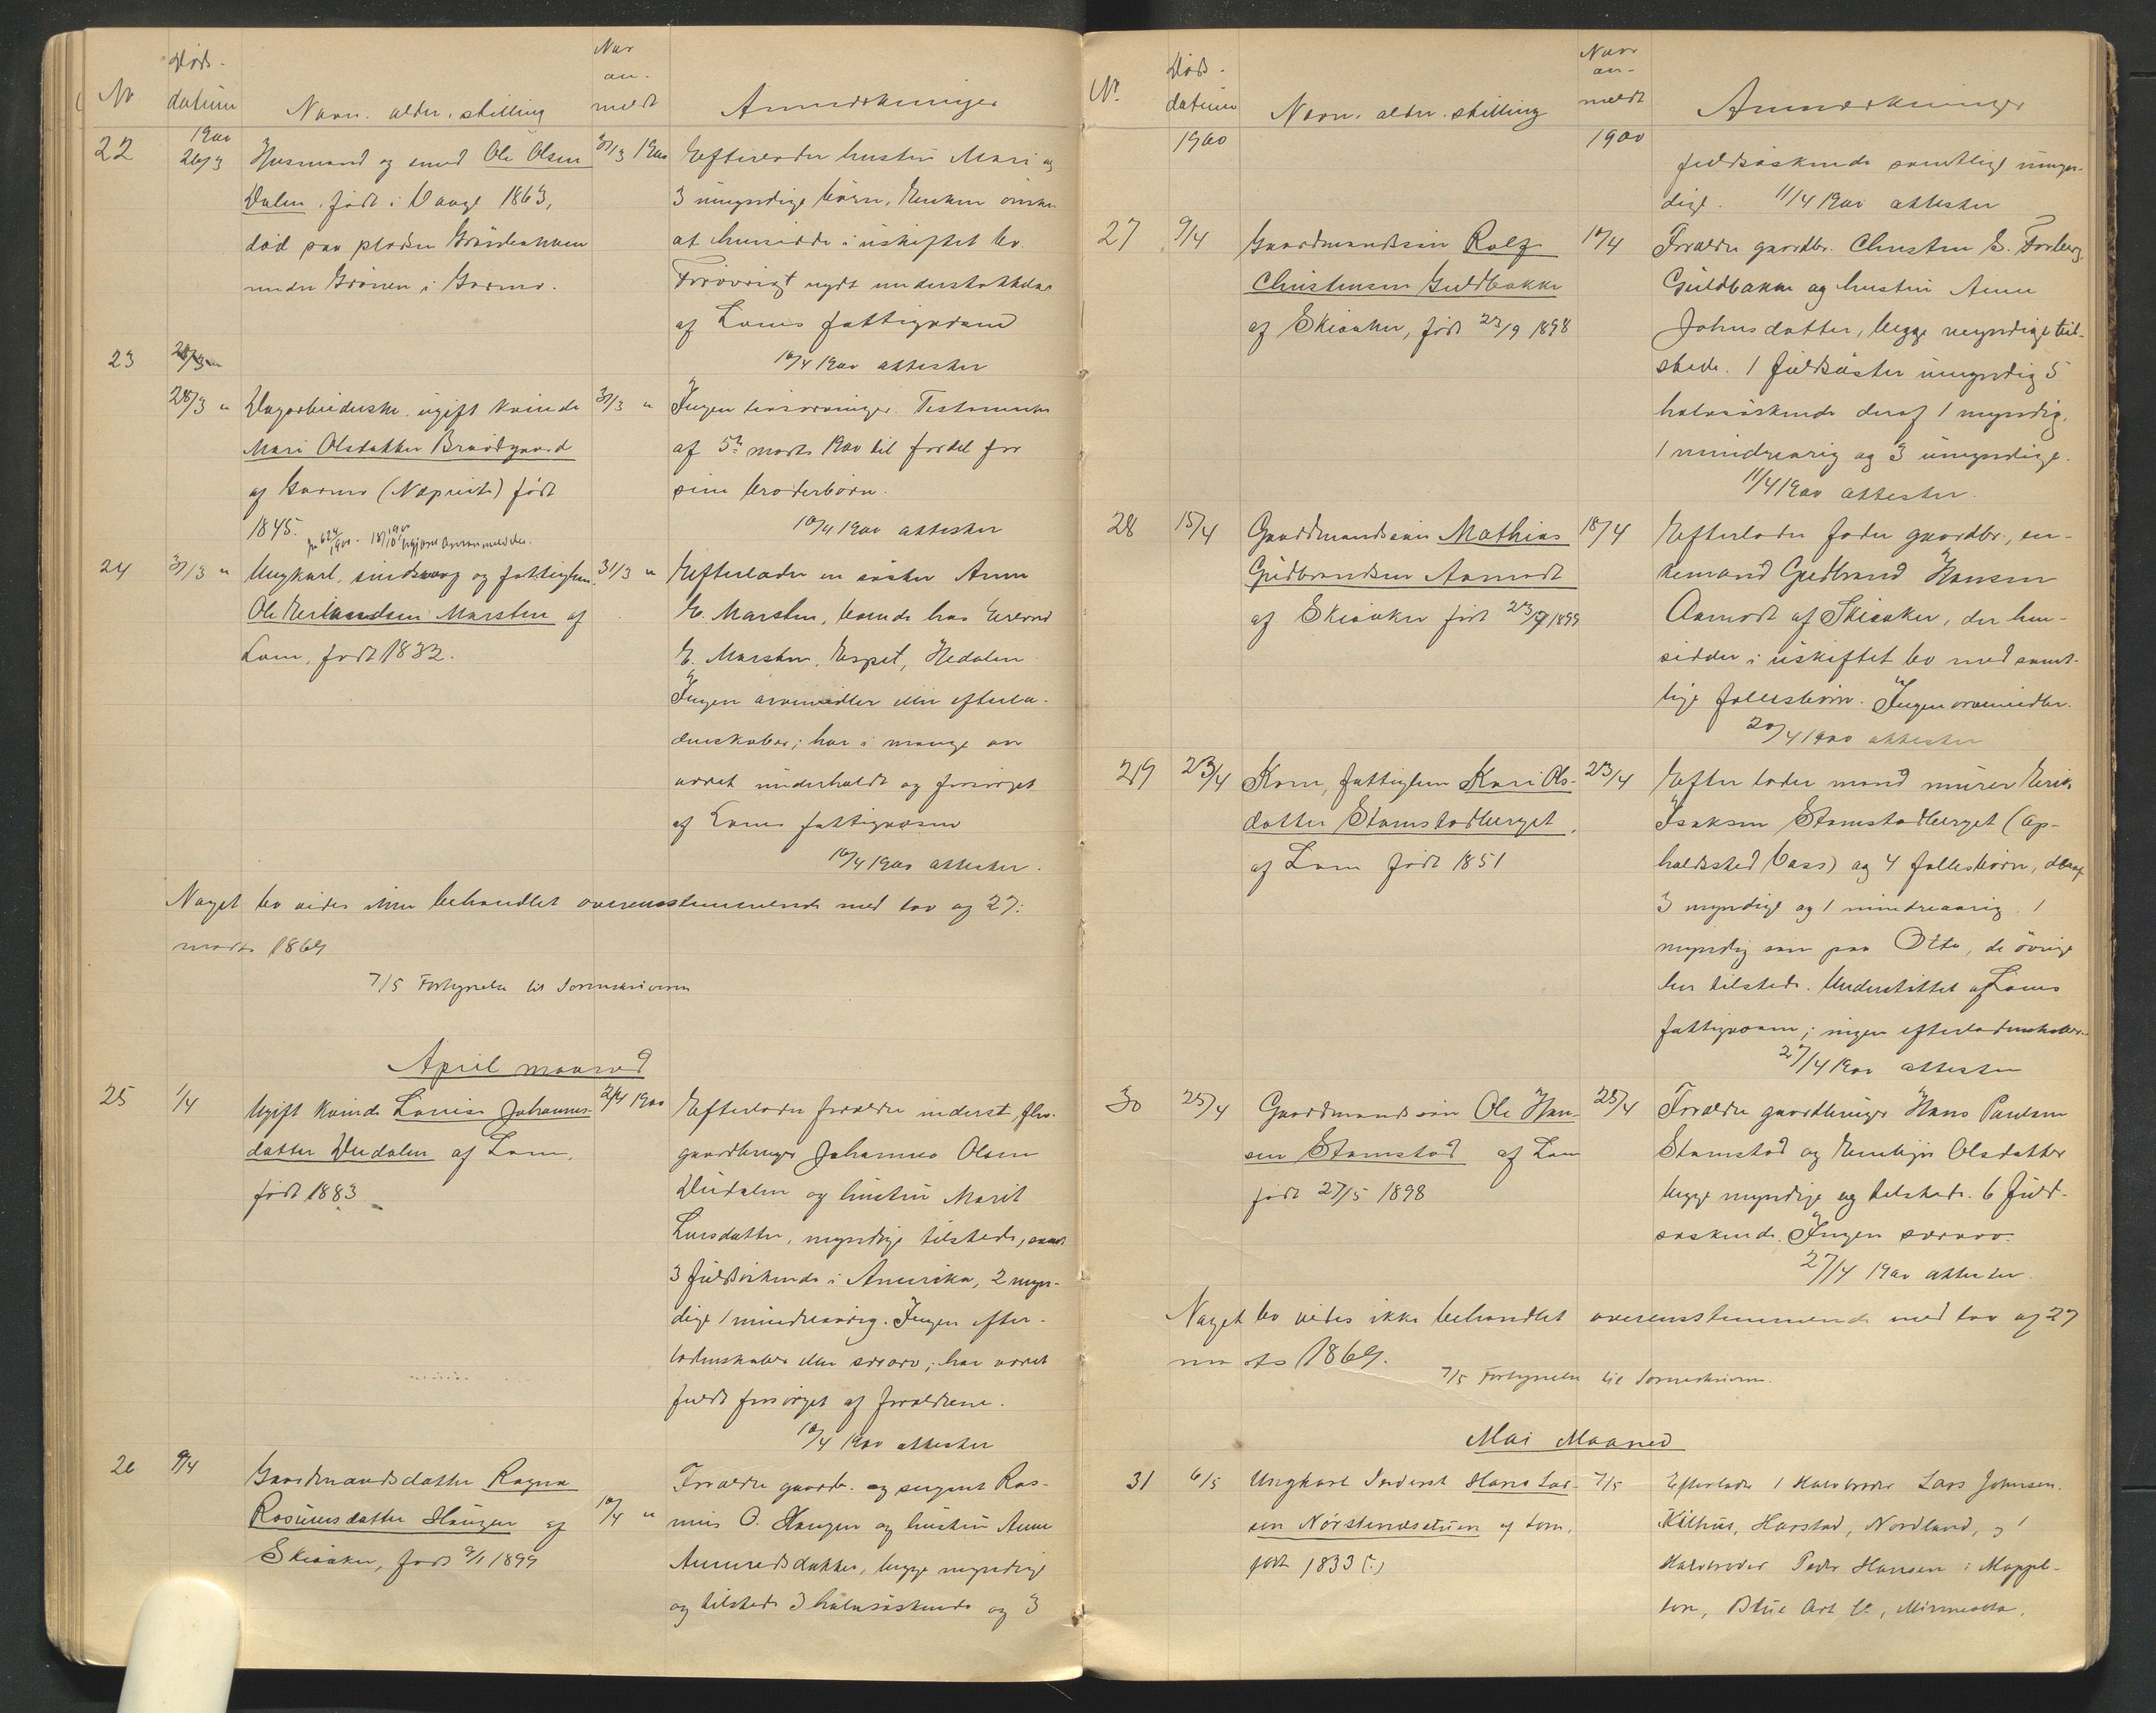 No Døds- datum Navn. alder. stilling Naar an- meldt Anmærkninger
22 1900 26/3 Husmand og smed Ole Olsen 31/3 1900 Efterlader hustru Mari og
Dalen. født i Vaage 1863, 3 umyndige børn. Enken ønsker
død paa pladsen at hensidde i uskiftet bo.
under Grønen i Garmo. Forøvrigt nydt understøttelse
af Loms fattigvæsen
23 10/4 1900 attester
28/3 " Dagarbeiderske. ugift kvinde 31/3 " Ingen livsarvinger. Testamente
Mari Olsdatter af 5te marts 1900 til fordel for
af Garmo født sine broderbørn.
1845. 10/4 1900 attester
24 31/3 " Ungkarl, sindssvag og fattiglem 31/3 " Efterlader en søster Anne
Ole Erlandsen Marsten af E. Marsten, boende hos Erland
Lom, født 1832. E. Marsten, Hedalen
Ingen arvemidler eller efterla-
denskaber; har i mange aar
været underholdt og forsørget
af Loms fattigvæsen
10/4 1900 attester.
Noget bo vides ikke behandlet overensstemmende med lov af 27:
marts 1869
7/5 Fortegnelse til Sorenskriveren
April maaned
25 1/4 Ugift kvinde Lovise Johannes- 1900 Efterlader forældre inderst, fhv.
datter af Lom, gaardbruger Johannes Olsen
født 1883 og hustru Marit
Larsdatter, myndige tilstede, samt
3 fuldsøskende i Amerika, 2 myn-
dige 1 mindreaarig. Ingen efter-
ladenskaber eller særarv; har været
fuldt forsørget af forældrene.
10/4 1900 attester
26 9/4 Gaardmandsdatter Ragna Forældre gaardb. og sergent Ras-
Rasmusdatter Haugen af 10/4 " mus O. Haugen og hustru Anne
Skiaaker, født 9/1 1899 Amundsdatter, begge myndige
og tilstede 3 halvsøskende og 3
No Døds- datum Navn. alder. stilling Naar an- meldt Anmærkninger
1900 1900 fuldsøskende samtlige umyn-
dige. 11/4 1900 attester
27 9/4 Gaardmandssøn Rolf 10/4 Forældre gaardbr. Christen E. Forberg
Christensen Guldbakke Guldbakke og hustru Anne
af Skiaaker, født 23/9 1898 Johnsdatter, begge myndige til-
stede. 1 fuldsøster umyndig 5
halvsøskende deraf 1 myndig,
1 mindreaarig og 3 umyndige.
11/4 1900 attester.
28 15/4 Gaardmandssøn Mathias 18/4 Efterlader fader gaardbr., en-
Gudbrandsen Aamodt kemand Gudbrand Hansen
af Skiaaker født 1899 Aamodt af Skiaaker, der hen-
sidder i uskiftet bo med samt-
lige fællesbørn. Ingen arvemidler.
20/4 1900 attester
29 23/4 Kone, fattiglem Kari Ols- 23/4 Efterlader mand murer Erik
datter Stamstadberget, Isaksen Stamstadberget (op-
af Lom født 1851 holdssted ) og 4 fællesbørn, deraf
3 myndige og 1 mindreaarig. 1
myndig søn paa Otta, de øvrige
her tilstede. Understøttet af Loms
fattigvæsen; ingen efterladenskaber.
27/4 1900 attester
30 25/4 Gaardmandssøn Ole Han- 25/4 Forældre gaardbruger Hans Paulsen
sen Stamstad af Lom Stamstad og Olsdatter
født 27/5 1898 begge myndige og tilstede. 6 fuld-
søskende. Ingen særarv.
27/4 1900 attester.
Noget bo vides ikke behandlet overensstemmende med lov af 27
marts 1869.
7/5 Fortegnelse til Sorenskriveren.
Mai Maaned
31 6/5 Ungkarl Inderst Hans Lar- 7/5 Efterlader 1 Halvbroder Lars Johnsen
sen af Lom, Harstad, Nordland, og 1
født 1833 (?) Halvbroder Peder Hansen i Mappel-
ton, Blue Art C., Minnesota.